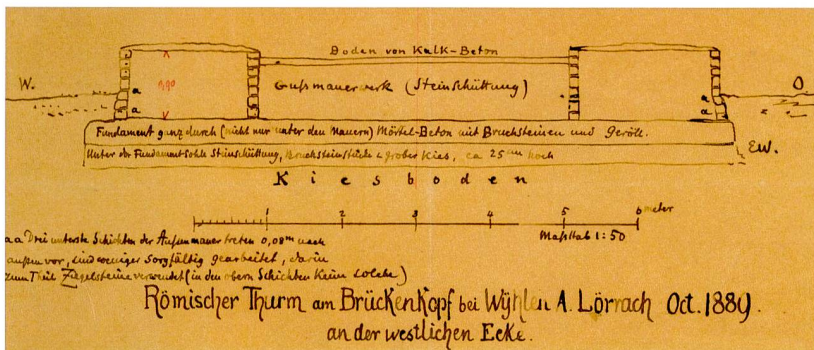 Boden von Kalk-Beton
W.
O
0,90
Gußmauerwerk (Steinschüttung)
a
a
a
a
Fundament ganz durch (nicht nur unter den Mauern) Mörtel-Beton mit Bruchsteinen und Geröll.
Unter der Fundamentsohle Steinschüttung, Bruchsteinstücke u grober Kies, ca 25 cm hoch
EW.
Kiesboden
1 2 3 4 5 6 meter
Maßstab 1:50
a a Drei unterste Schichten der Außenmauer treten 0,08m nach
außen vor, sind weniger sorgfältig gearbeitet, darin
zum Theil Ziegelsteine verwendet (in den obern Schichten keine solche)
Römischer Thurm am Brückenkopf bei Wÿhlen A. Lörrach Oct. 1889.
an der westlichen Ecke.